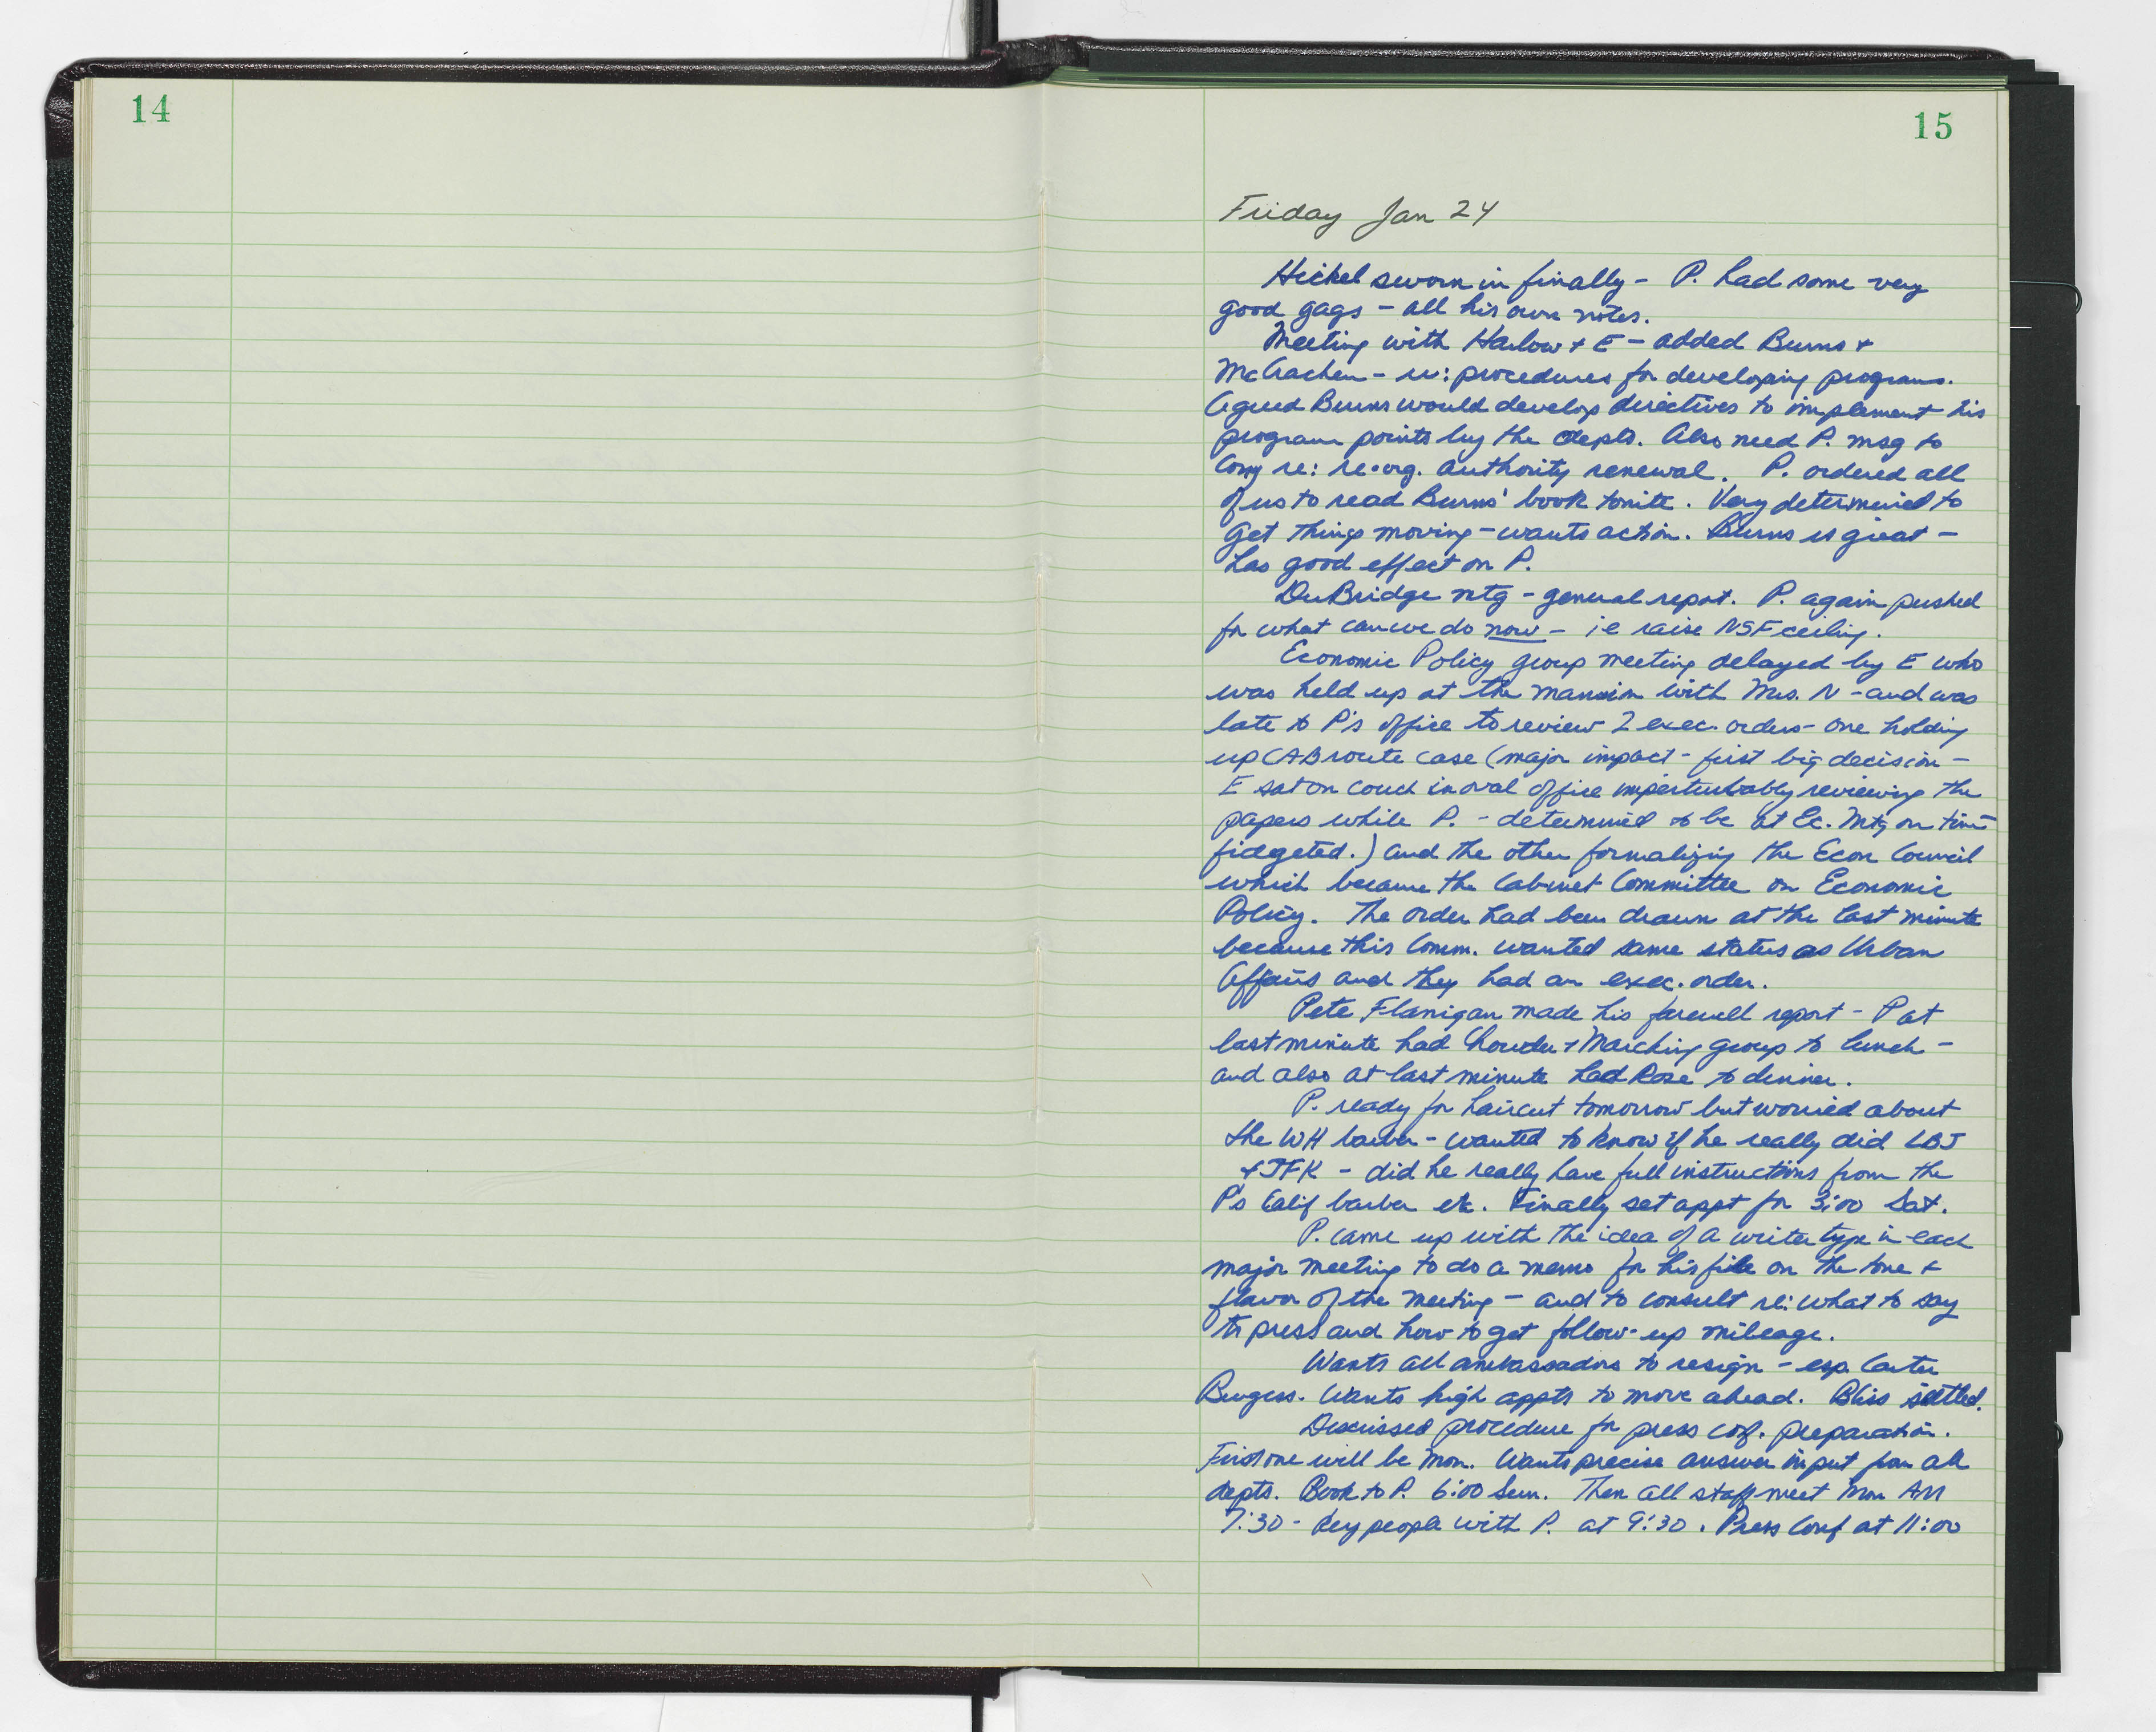 14
15
Friday Jan 24
Hickel sworn in finally - P. had some very
good gags - all his own notes.
Meeting with Harlow + E - added Burns +
McCracken - re: procedures for developing programs.
Agreed Burns would develop directives to implement his
program points by the depts. Also need P. msg to
Cong re: re-org. authority renewal. P. ordered all
of us to read Burns' book tonite. Very determined to
get things moving - wants action. Burns is great -
has good effect on P.
DuBridge mtg - general report. P. again pushed
for what can we do now - i e raise NSF ceiling.
Economic Policy group meeting delayed by E who
was held up at the mansion with Mrs. N - and was
late to P's office to review 2 exec. orders - one holding
up CAB route case (major impact - first big decision -
E sat on couch in oval office imperturbably reviewing the
papers while P. - determined to be at Ec. Mtg on time
fidgeted.) and the other formalizing the Econ Council
which became the Cabinet Committee on Economic
Policy. The order had been drawn at the last minute
because this Comm. wanted same status as Urban
Affairs and they had an exec. order.
Pete Flanigan made his farewell report - P at
last minute had Chowder + Marching group to lunch -
and also at last minute had Rose to dinner.
P. ready for haircut tomorrow but worried about
the WH barber - wanted to know if he really did LBJ
+ JFK - did he really have full instructions from the
P's Calif barber etc. Finally set appt for 3:00 Sat.
P. came up with the idea of a writer type in each
major meeting to do a memo for his file on the tone +
flavor of the meeting - and to consult re: what to say
to press and how to get follow-up mileage.
Wants all ambassadors to resign - esp. Carter
Burgess. Wants high appts to move ahead. Bliss settled.
Discussed procedure for press conf. preparation.
First one will be Mon. Wants precise answer input from all
depts. Book to P. 6:00 Sun. Then all staff meet Mon AM
7:30 - Key people with P. at 9:30. Press Conf at 11:00